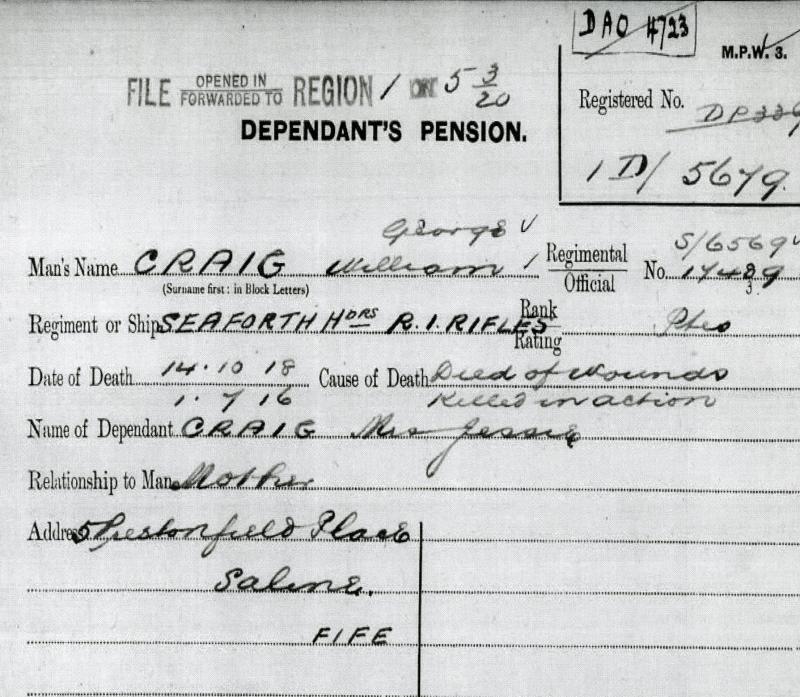 DAO 4723
M.P.W. 3.
FILE OPENED IN FORWARDED TO REGION 1 ON 5 3/20
Registered No. DP339
DEPENDANT'S PENSION.
1D/ 5679.
George
Man's Name CRAIG William Regimental Official No. S/6569 17489
(Surname first: in Block Letters) 3
Regiment or Ship SEAFORTH HDRS R.I. RIFLES Rank Rating Ptes
Date of Death 14.10 18 Cause of Death Died of Wounds
1. 7 16 Killed in action
Name of Dependant CRAIG Mrs Jessie
Relationship to Man Mother
Address 5 Prestonfield Place
Saline.
FIFE